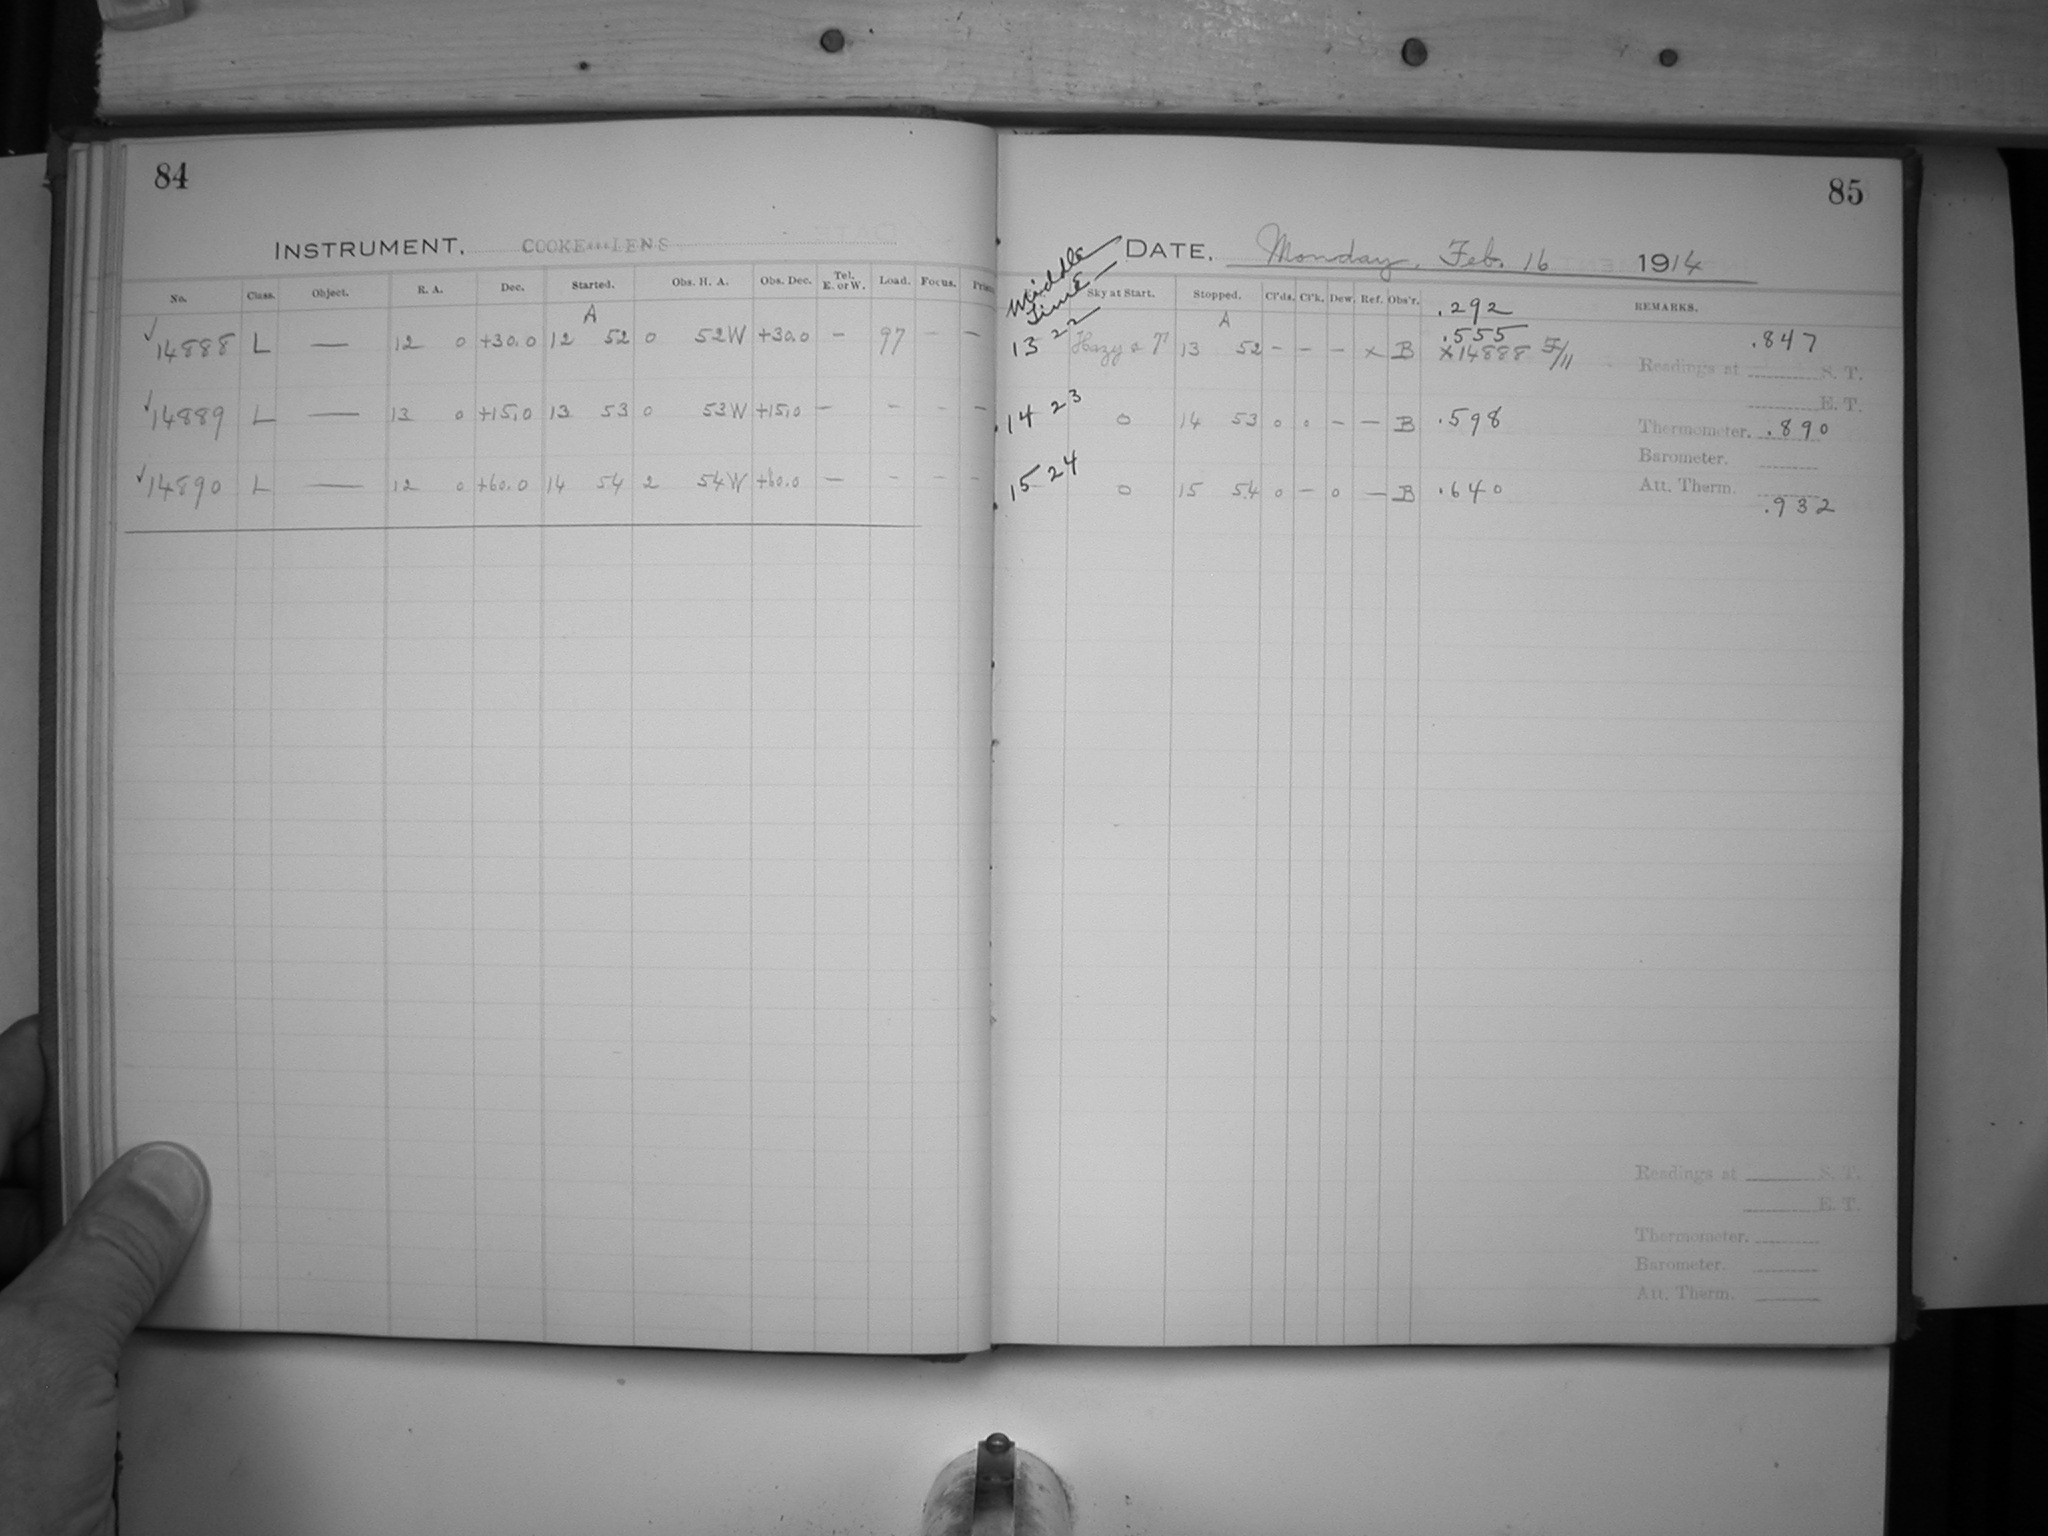 84
INSTRUMENT. COOKE LENS
No. Class. Object. R. A. Dec. Started. Obs. H. A. Obs. Dec. Tel. E. or W. Load. Focus.
A
✓14888 L — 12 0 +30.0 12 52 0 52W +30.0 — 97 — —
✓14889 L — 13 0 +15.0 13 53 0 53W +15.0 — - - —
✓14890 L — 12 0 +60.0 14 54 2 54W +60.0 — - - —
85
DATE. Monday, Feb. 16 1914
Middle Time
Sky at Start. Stopped. Cl'ds. Cl'k. Dew. Ref. Obs'r. REMARKS.
.292
A
.555
13 22 Hazy 13 52 - - - x B x14888 .847
Readings at S. T.
E. T.
14 23 0 14 53 0 0 - — B .598
Thermometer. .890
Barometer.
15 24 0 15 54 0 - 0 — B .640
Att. Therm.
.932
Readings at S. T.
E. T.
Thermometer.
Barometer.
Att. Therm.